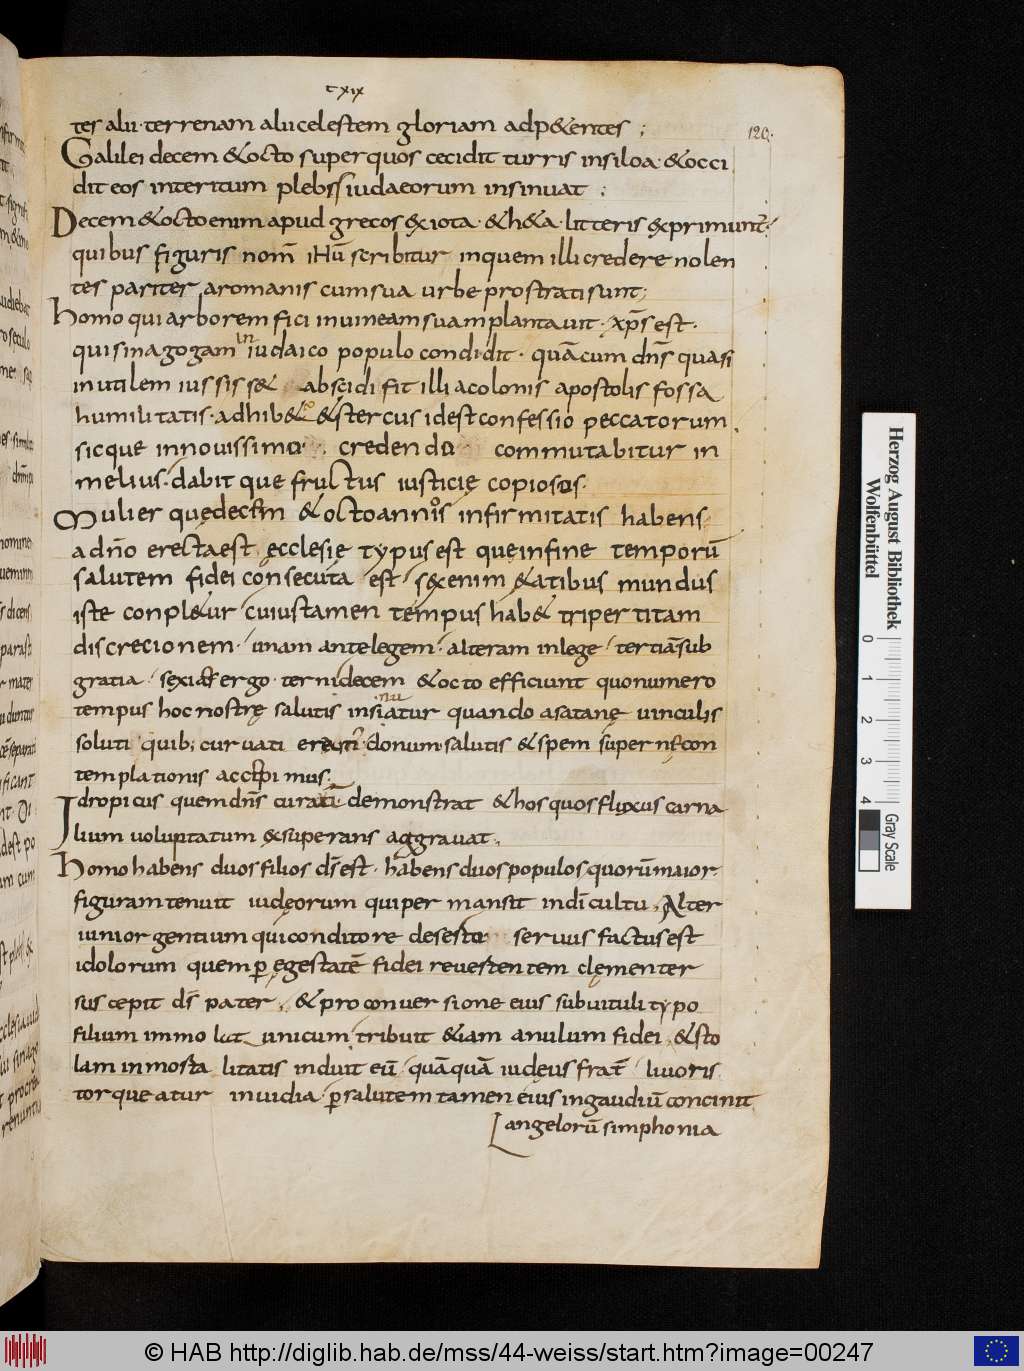 cxix
120.
tes alii· terrenam alii celestem gloriam adp&entes ;
Galilei decem & octo super quos cecidit turris in siloa· & occi
dit eos interitum plebis iudaeorum insinuat ;
Decem & octo enim apud grecos ex iota· & h&a· litteris exprimunt̄·
quibus figuris nom̄ ihū scribitur in quem illi credere nolen
tes pariter a romanis cum sua urbe prostrati sunt;
homo qui arborem fici in uineam suam plantauit· xp̄s est·
qui sinagogam in iudaico populo condidit· quā cum dn̄s quasi
inutilem iussiss& abscidi fit illi a colonis apostolis fossa
humilitatis· adhib& & stercus id est confessio peccatorum
sicque in nouissimo credendo commutabitur in
melius· dabitque fructus iusticię copiosos·
Mulier quę decem & octo annis infirmitatis habens
a dn̄o erecta est ęcclesię typus est que in fine temporū
salutem fidei consecuta est sex enim &atibus mundus
iste conpl&ur cuius tamen tempus hab& tripertitam
discrecionem· unam ante legem· alteram in lege tertiā sub
gratia· sexiař ergo· terni decem & octo efficiunt quo numero
tempus hoc nostrę salutis insinuatur quando a satanę uinculis
soluti quib; curuati erecti· donum salutis & spem supernę con
templationis accepimus·
Idropicus quem dn̄s curauit demonstrat & hos quos fluxus carna
lium uoluptatum exsuperans aggrauat·
homo habens duos filios ds̄ est· habens duos populos quorū maior
figuram tenuit iudęorum qui permansit in dī cultu· Alter
iunior gentium qui conditore deserto seruus factus est
idolorum quem p̱ ęgestatē fidei reuertentem clęmenter
suscepit ds̄ pater· & pro conuersione eius sub uituli typo
filium immolat unicum tribuit &iam anulum fidei· & sto
lam inmortalitatis induit eū quāquā iudęus frat̄ liuoris
torqueatur inuidia· p̱ salutem tamen eius in gaudiū concinit
angelorū simphonia
Herzog August Bibliothek
Wolfenbüttel
0 1 2 3 4
Gray Scale
© HAB http://diglib.hab.de/mss/44-weiss/start.htm?image=00247